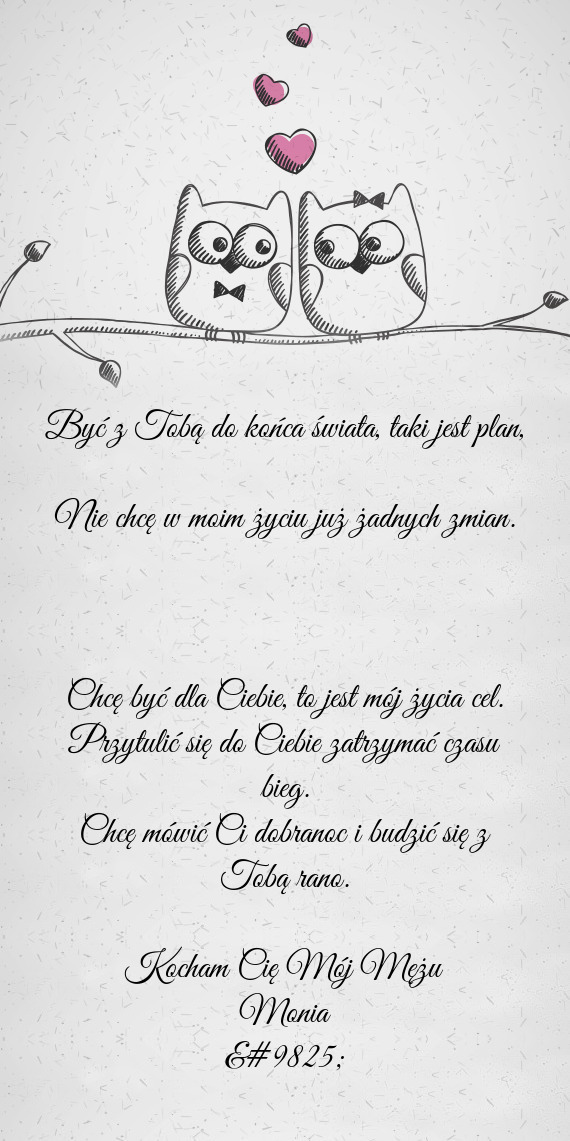 Być z Tobą do końca świata, taki jest plan,
Nie chcę w moim życiu już żadnych zmian.
Chcę być dla Ciebie, to jest mój życia cel.
Przytulić się do Ciebie zatrzymać czasu
bieg.
Chcę mówić Ci dobranoc i budzić się z
Tobą rano.
Kocham Cię Mój Mężu
Monia
&#9825;